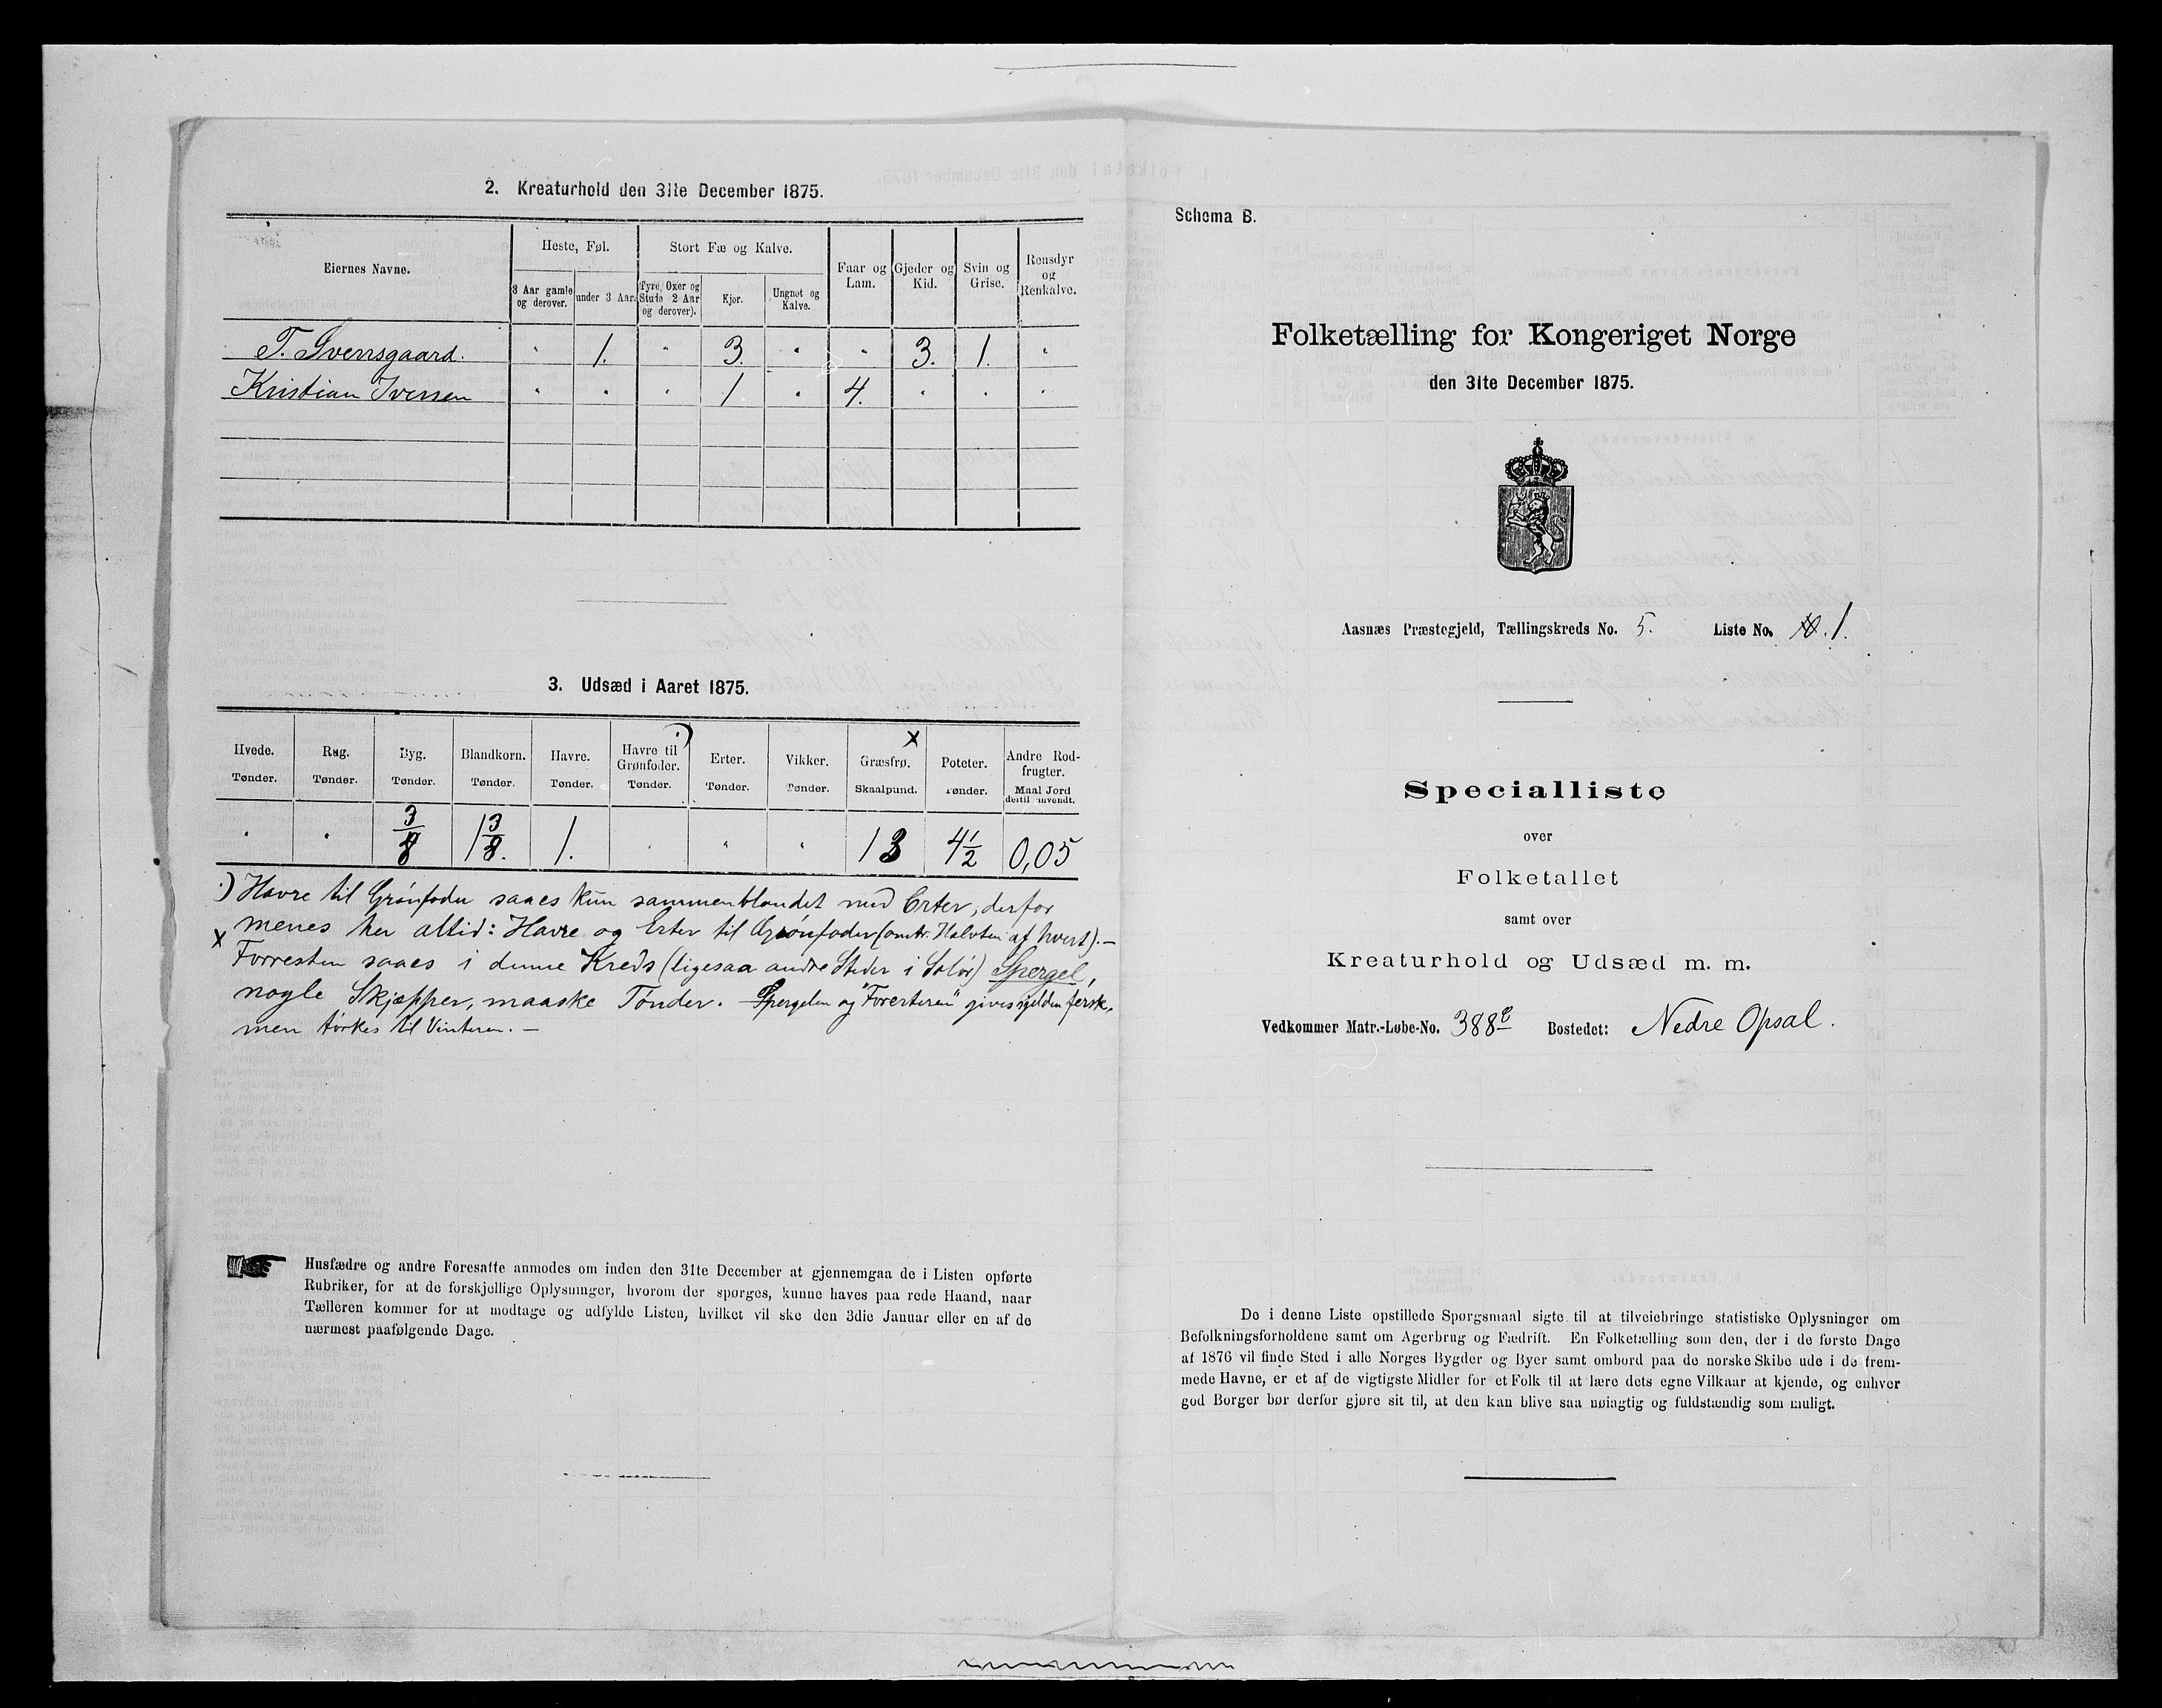 2. Kreaturhold den 31te December 1875.
Eiernes Navne.
Heste, Føl.
Stort Fæ og Kalve.
Faar og Lam.
Gjeder og Kid.
Svin og Grise.
Rensdyr og Renkalve.
3 Aar gamle og derover.
under 3 Aar.
Tyre, Oxer og Stude 2 Aar og derover).
Kjør.
Ungnøt og Kalve.
T. Svensgaard. " 1. " 3. " " 3. 1. "
Kristian Iversen " " " 1 " 4. " " "
3. Udsæd i Aaret 1875.
Hvede. Rug. Byg. Blandkorn. Havre. Havre til Grønfoder. ·) Erter. Vikker. Græsfrø. x Poteter. Andre Rodfrugter.
Tønder. Tønder. Tønder. Tønder. Tønder. Tønder. Tønder. Tønder. Skaalpund. Tønder. Maal Jord dertil anvendt.
" " 3/8 1 3/8. 1. " " " 13 4 1/2 0,05
·) Havre til Grønfoder saaes kun sammenblandet med Erter, derfor
menes her altid: Havre og Erter til Grønfoder (omtr. Halvten af hvert). –
x Forresten saaes i denne Kreds (ligesaa andre Steder i Solør) Spergel,
nogle Skjæpper, maaske Tønder. – Spergelen og "Foerterene" gives sjelden fersk,
men tørkes til Vinteren. –
Husfædre og andre Foresatte anmodes om inden den 31te December at gjennemgaa de i Listen opførte
Rubriker, for at de forskjellige Oplysninger, hvorom der spørges, kunne haves paa rede Haand, naar
Tælleren kommer for at modtage og udfylde Listen, hvilket vil ske den 3die Januar eller en af de
nærmest paafølgende Dage.
Schema B.
Folketælling for Kongeriget Norge
den 31te December 1875.
Aasnæs Præstegjeld, Tællingskreds No. 5. Liste No. 1.
Specialliste
over
Folketallet
samt over
Kreaturhold og Udsæd m. m.
Vedkommer Matr.-Løbe-No. 388e Bostedet: Nedre Opsal.
De i denne Liste opstillede Spørgsmaal sigte til at tilveiebringe statistiske Oplysninger om
Befolkningsforholdene samt om Agerbrug og Fædrift. En Folketælling som den, der i de første Dage
af 1876 vil finde Sted i alle Norges Bygder og Byer samt ombord paa de norske Skibe ude i de frem-
mede Havne, er et af de vigtigste Midler for et Folk til at lære dets egne Vilkaar at kjende, og enhver
god Borger bør derfor gjøre sit til, at den kan blive saa nøiagtig og fuldstændig som muligt.